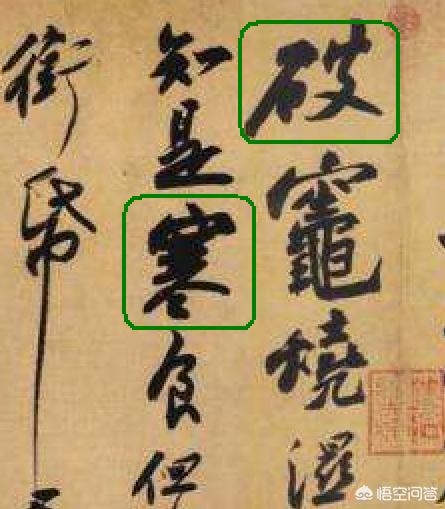 破竈燒濕
知是寒食但
銜帋
悟空问答